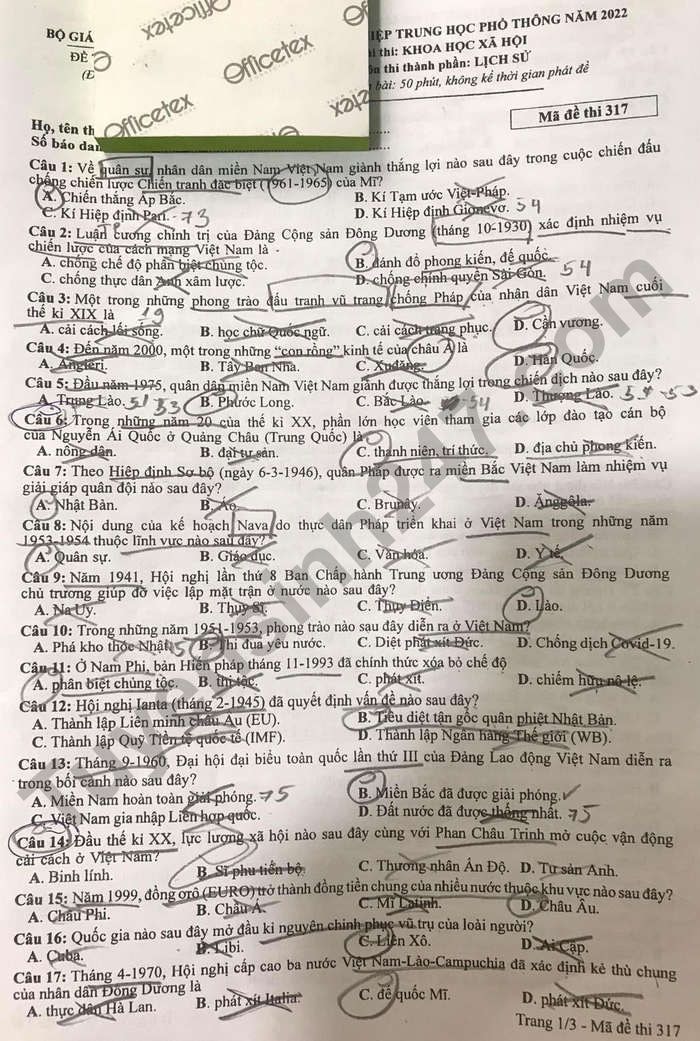 BỘ GIÁ
IỆP TRUNG HỌC PHỔ THÔNG NĂM 2022
ĐỀ
i thi: KHOA HỌC XÃ HỘI
n thi thành phần: LỊCH SỬ
bài: 50 phút, không kể thời gian phát đề
Officetex
Officetex
Officetex
Officetex
Mã đề thi 317
Họ, tên th
Số báo dan
Câu 1: Về quân sự, nhân dân miền Nam Việt Nam giành thắng lợi nào sau đây trong cuộc chiến đấu
chống chiến lược Chiến tranh đặc biệt (1961-1965) của Mĩ?
A. Chiến thắng Ấp Bắc. B. Kí Tạm ước Việt-Pháp.
C. Kí Hiệp định Pari. - 73 D. Kí Hiệp định Giơnevơ. 54
Câu 2: Luận cương chính trị của Đảng Cộng sản Đông Dương (tháng 10-1930) xác định nhiệm vụ
chiến lược của cách mạng Việt Nam là
A. chống chế độ phân biệt chủng tộc. B. đánh đổ phong kiến, đế quốc.
C. chống thực dân Anh xâm lược. D. chống chính quyền Sài Gòn. 54
Câu 3: Một trong những phong trào đấu tranh vũ trang chống Pháp của nhân dân Việt Nam cuối
thế kỉ XIX là 19
A. cải cách lối sống. B. học chữ Quốc ngữ. C. cải cách trang phục. D. Cần vương.
Câu 4: Đến năm 2000, một trong những “con rồng” kinh tế của châu Á là
A. Angiêri. B. Tây Ban Nha. C. Xuđăng. D. Hàn Quốc.
Câu 5: Đầu năm 1975, quân dân miền Nam Việt Nam giành được thắng lợi trong chiến dịch nào sau đây?
A. Trung Lào. 53 B. Phước Long. C. Bắc Lào. 54 D. Thượng Lào. 53-53
Câu 6: Trong những năm 20 của thế kỉ XX, phần lớn học viên tham gia các lớp đào tạo cán bộ
của Nguyễn Ái Quốc ở Quảng Châu (Trung Quốc) là
A. nông dân. B. đại tư sản. C. thanh niên, trí thức. D. địa chủ phong kiến.
Câu 7: Theo Hiệp định Sơ bộ (ngày 6-3-1946), quân Pháp được ra miền Bắc Việt Nam làm nhiệm vụ
giải giáp quân đội nào sau đây?
A. Nhật Bản. B. Áo. C. Brunây. D. Ănggôla.
Câu 8: Nội dung của kế hoạch Nava do thực dân Pháp triển khai ở Việt Nam trong những năm
1953-1954 thuộc lĩnh vực nào sau đây?
A. Quân sự. B. Giáo dục. C. Văn hóa. D. Y tế.
Câu 9: Năm 1941, Hội nghị lần thứ 8 Ban Chấp hành Trung ương Đảng Cộng sản Đông Dương
chủ trương giúp đỡ việc lập mặt trận ở nước nào sau đây?
A. Na Uy. B. Thụy Sĩ. C. Thụy Điển. D. Lào.
Câu 10: Trong những năm 1951-1953, phong trào nào sau đây diễn ra ở Việt Nam?
A. Phá kho thóc Nhật. B. Thi đua yêu nước. C. Diệt phát xít Đức. D. Chống dịch Covid-19.
Câu 11: Ở Nam Phi, bản Hiến pháp tháng 11-1993 đã chính thức xóa bỏ chế độ
A. phân biệt chủng tộc. B. thị tộc. C. phát xít. D. chiếm hữu nô lệ.
Câu 12: Hội nghị Ianta (tháng 2-1945) đã quyết định vấn đề nào sau đây?
A. Thành lập Liên minh châu Âu (EU). B. Tiêu diệt tận gốc quân phiệt Nhật Bản.
C. Thành lập Quỹ Tiền tệ quốc tế (IMF). D. Thành lập Ngân hàng Thế giới (WB).
Câu 13: Tháng 9-1960, Đại hội đại biểu toàn quốc lần thứ III của Đảng Lao động Việt Nam diễn ra
trong bối cảnh nào sau đây?
A. Miền Nam hoàn toàn giải phóng. 75 B. Miền Bắc đã được giải phóng.
C. Việt Nam gia nhập Liên hợp quốc. D. Đất nước đã được thống nhất. 75
Câu 14: Đầu thế kỉ XX, lực lượng xã hội nào sau đây cùng với Phan Châu Trinh mở cuộc vận động
cải cách ở Việt Nam?
A. Binh lính. B. Sĩ phu tiến bộ. C. Thương nhân Ấn Độ. D. Tư sản Anh.
Câu 15: Năm 1999, đồng ơrô (EURO) trở thành đồng tiền chung của nhiều nước thuộc khu vực nào sau đây?
A. Châu Phi. B. Châu Á. C. Mĩ Latinh. D. Châu Âu.
Câu 16: Quốc gia nào sau đây mở đầu kỉ nguyên chinh phục vũ trụ của loài người?
A. Cuba. B. Libi. C. Liên Xô. D. Ai Cập.
Câu 17: Tháng 4-1970, Hội nghị cấp cao ba nước Việt Nam-Lào-Campuchia đã xác định kẻ thù chung
của nhân dân Đông Dương là
A. thực dân Hà Lan. B. phát xít Italia. C. đế quốc Mĩ. D. phát xít Đức.
Trang 1/3 - Mã đề thi 317
Tuyensinh247.com